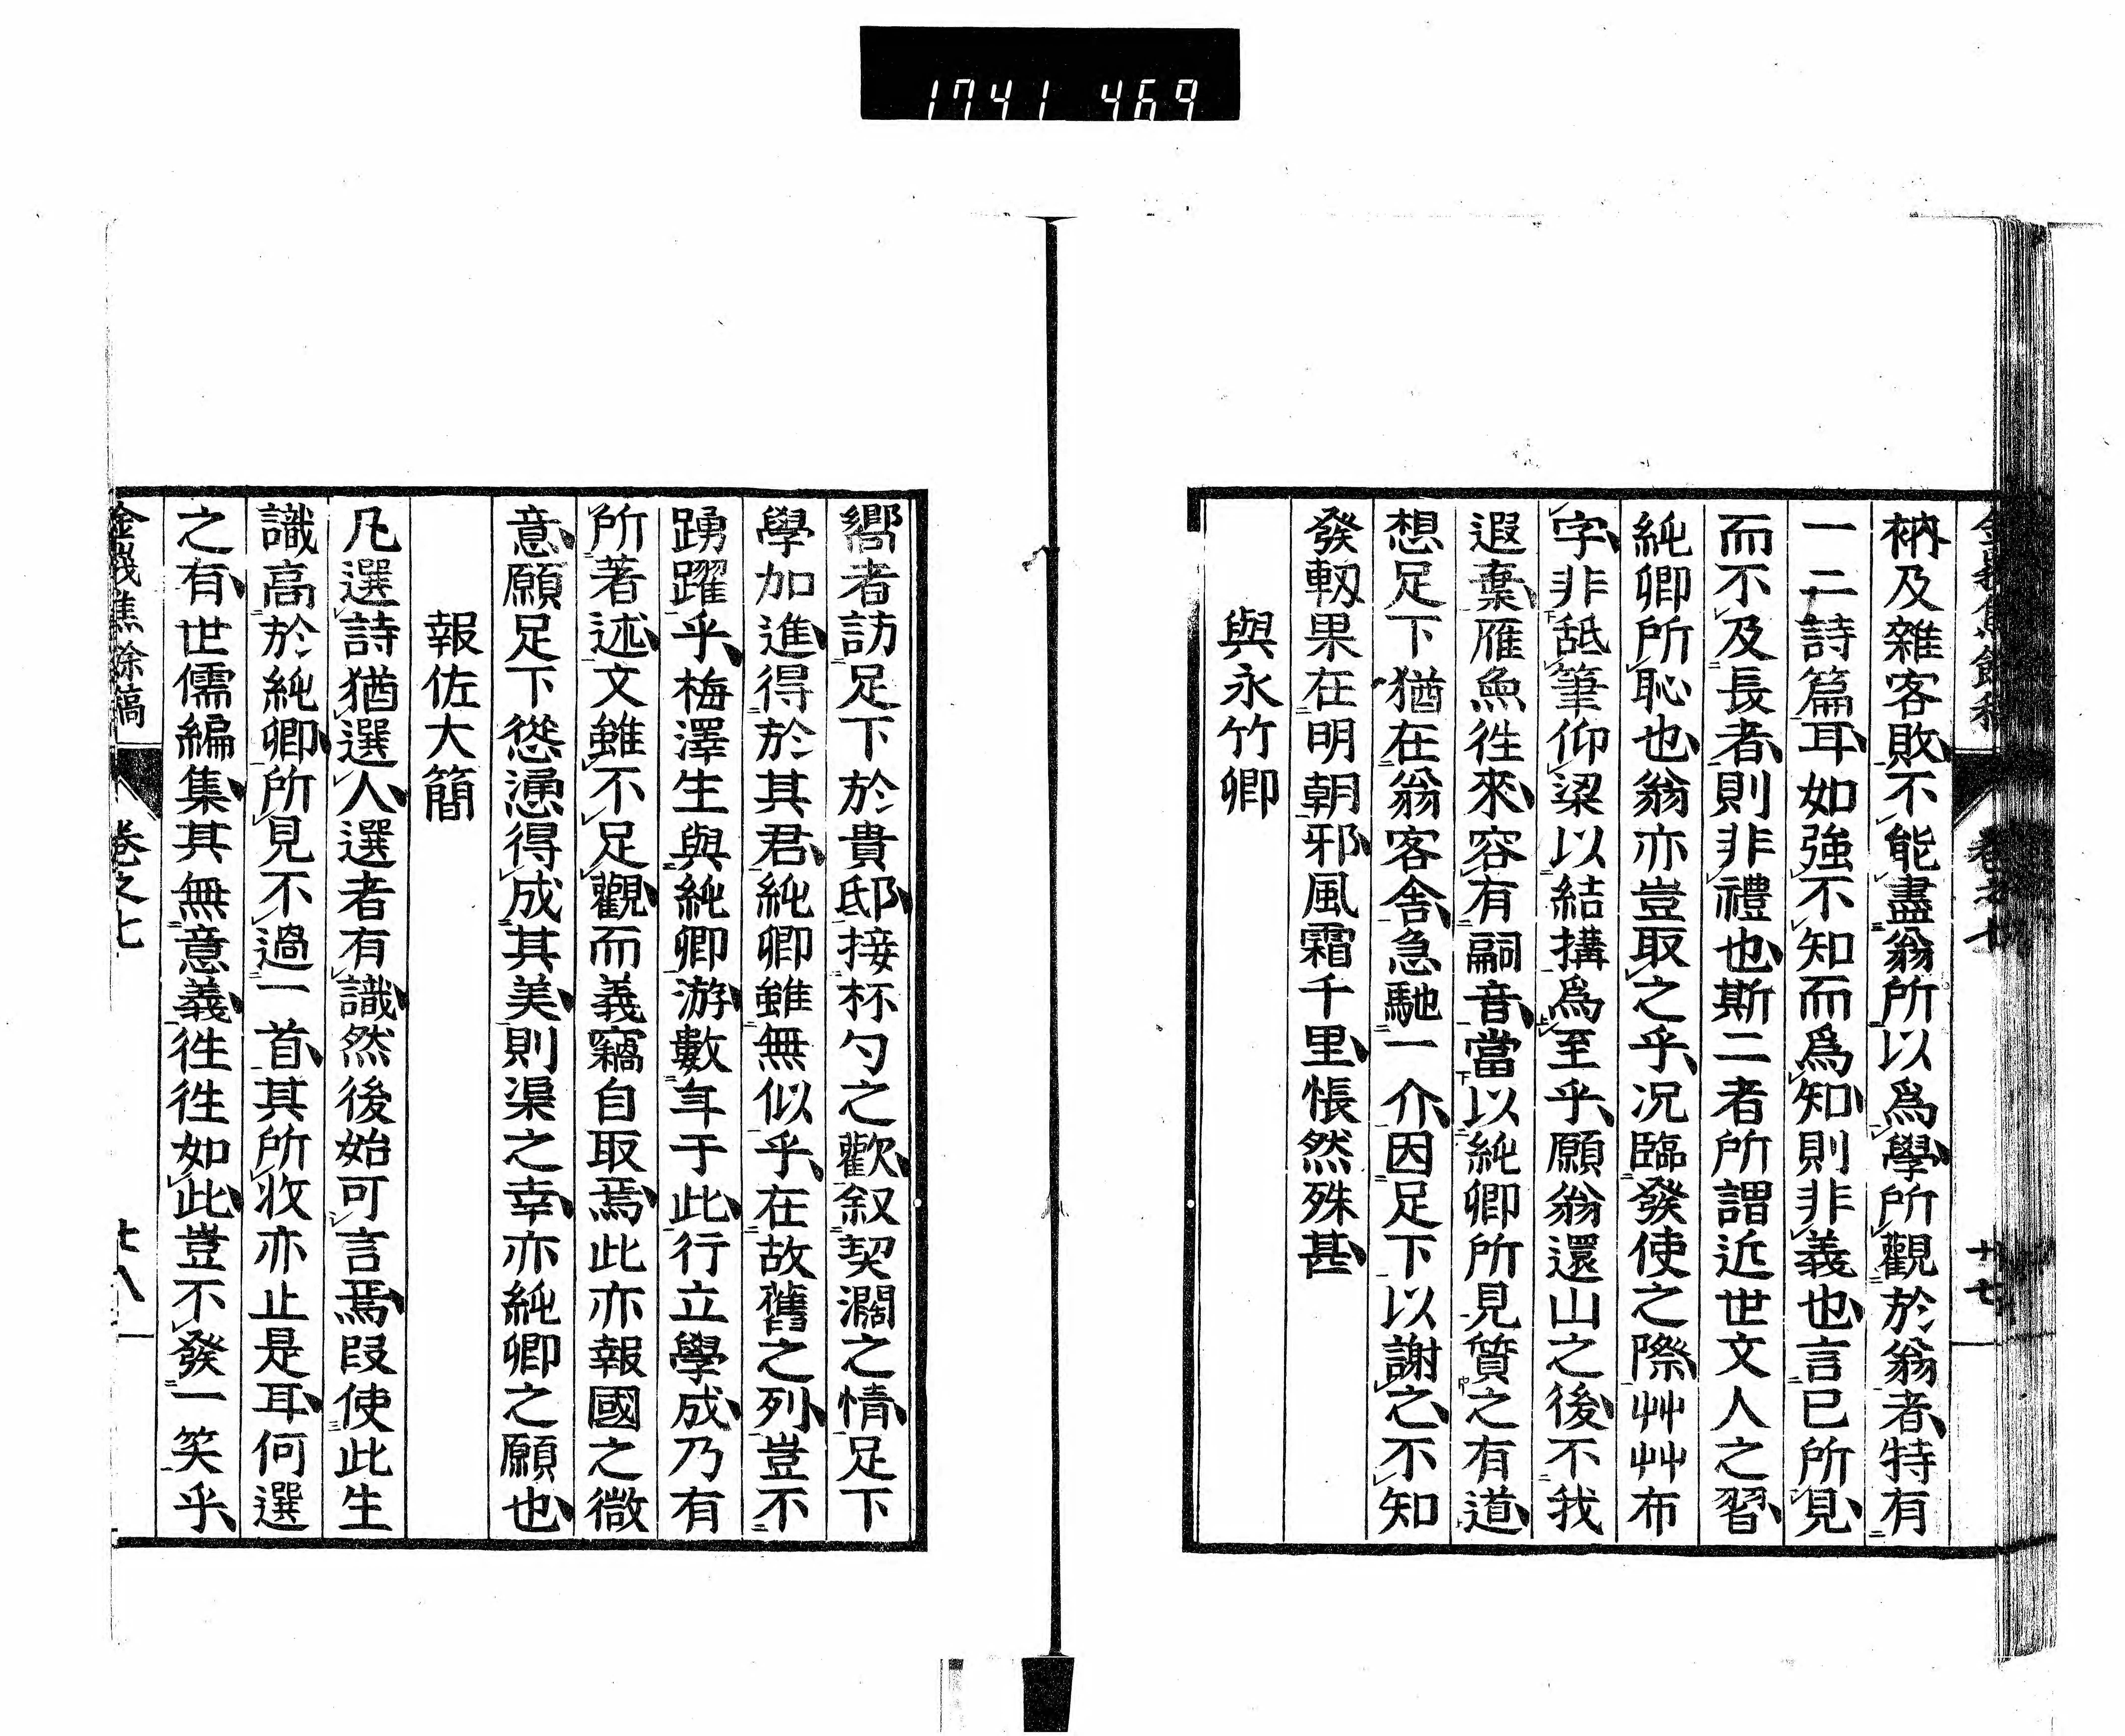 1741 469
衲及雜客敗不能盡翁所以爲學所觀於翁者特有
一二詩篇耳如強不知而爲知則非義也言已所見
而不及長者則非禮也斯二者所謂近世文人之習
純卿所恥也翁亦豈取之乎况臨發使之際艸艸布
字非舐筆仰梁以結搆爲至乎願翁還山之後不我
遐棄雁魚徃來容有嗣音當以純卿所見質之有道
想足下猶在翁客舍急馳一介因足下以謝之不知
發軔果在明朝邪風霜千里悵然殊甚
與永竹卿
嚮者訪足下於貴邸接杯勺之歡叙契濶之情足下
學加進得於其君純卿雖無似乎在故舊之列豈不
踴躍乎梅澤生與純卿游數年于此行立學成乃有
所著述文雖不足觀而義竊自取焉此亦報國之微
意願足下慫慂得成其美則渠之幸亦純卿之願也
報佐大簡
凡選詩猶選人選者有識然後始可言焉叚使此生
識高於純卿所見不過一首其所收亦止是耳何選
之有世儒編集其無意義徃徃如此豈不發一笑乎
金峩焦餘稿 卷之七 廿八